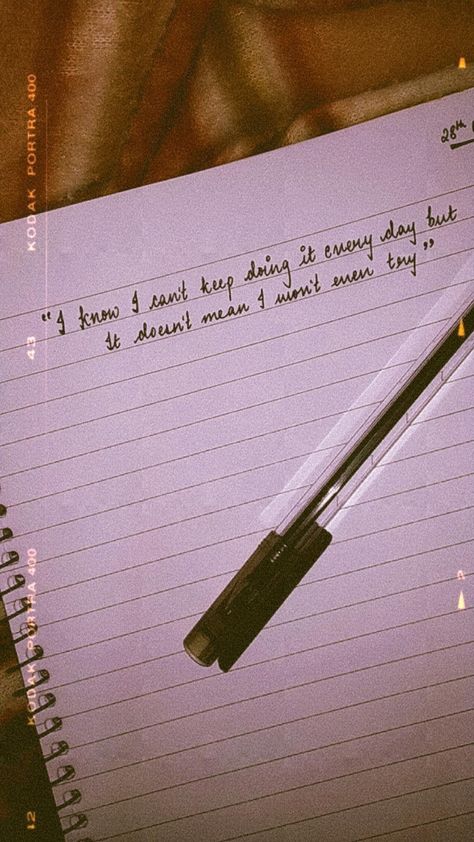 28th
"I know I can't keep doing it every day but
It doesn't mean I won't even try"
KODAK PORTRA 400
43
KODAK PORTRA 400
12
2